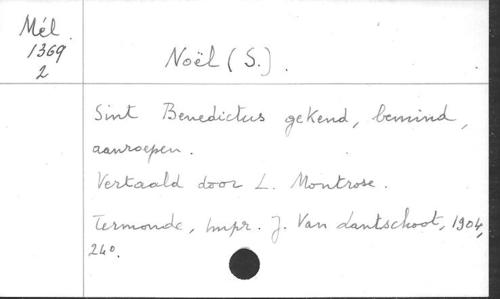 Mél.
1369
2
Noël (S.).
Sint Benedictus gekend, bemind,
aanroepen.
Vertaald door L. Montrose.
Termonde, Impr. J. Van Lantschoot, 1904,
24°.